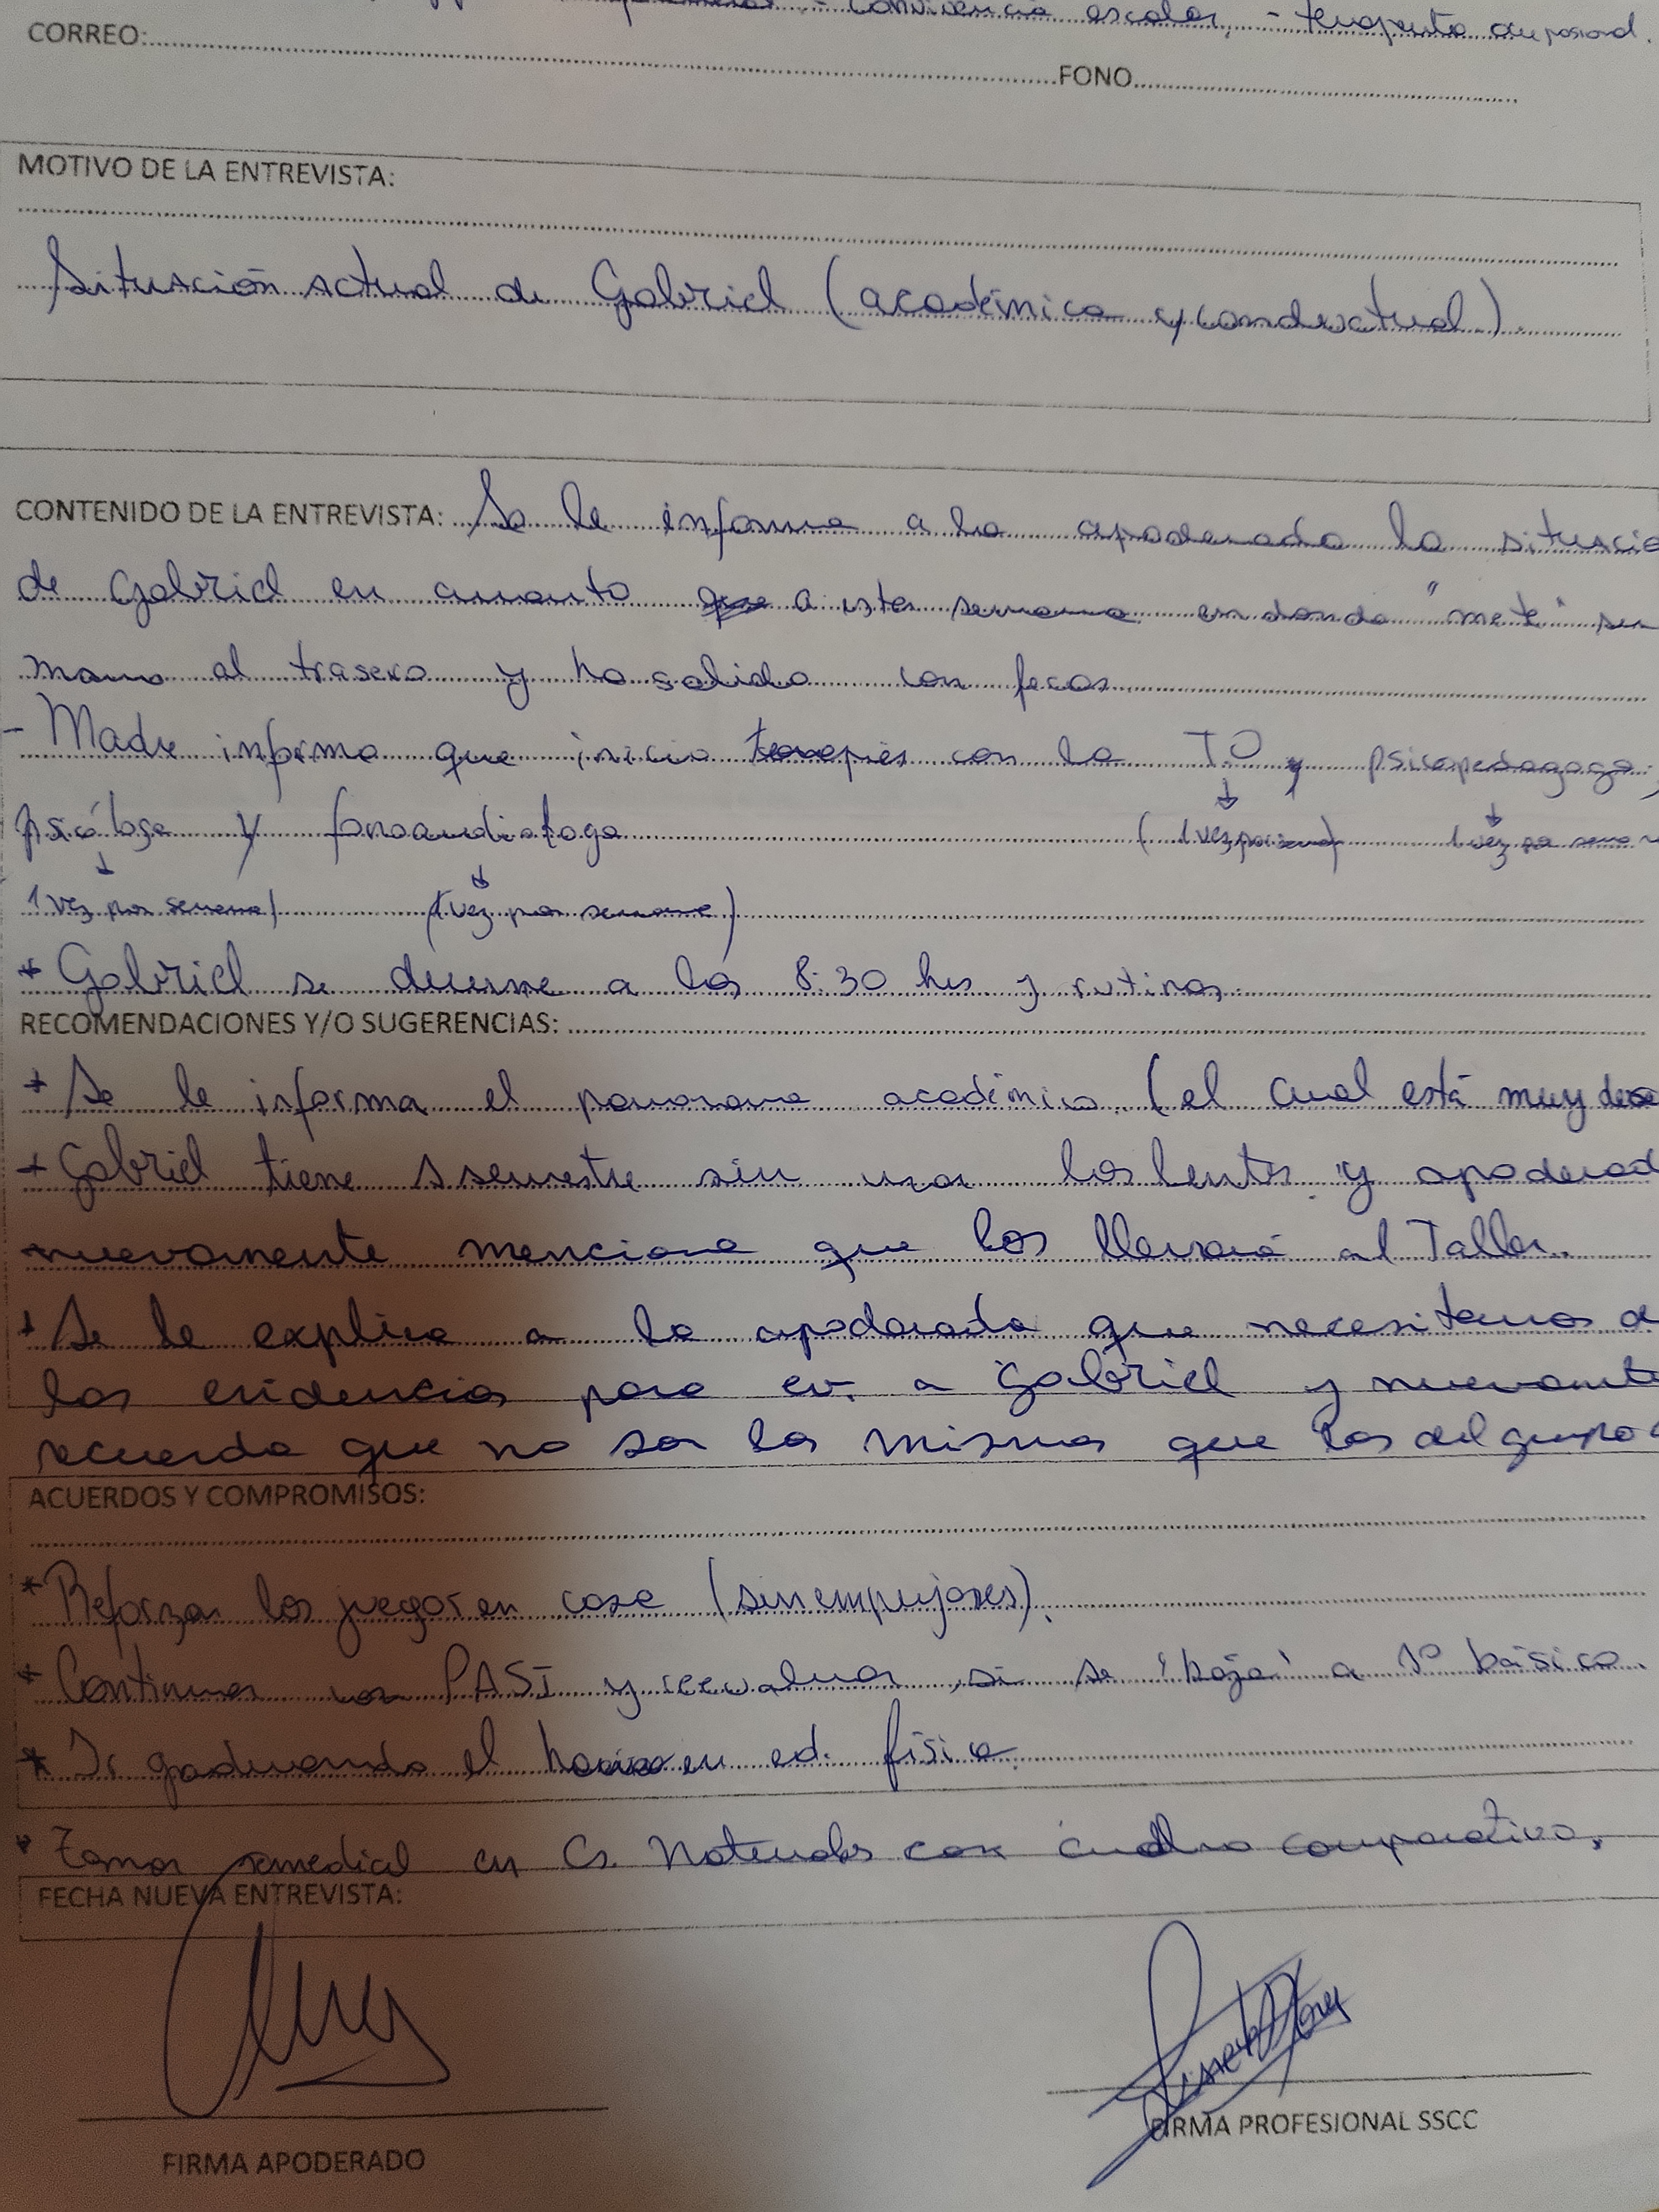 - Convivencia escolar, - terapeuta ocupacional.
CORREO:
FONO
MOTIVO DE LA ENTREVISTA:
Situación actual de Gabriel (académica y conductual).
CONTENIDO DE LA ENTREVISTA: Se le informa a la apoderada la situació
de Gabriel en cuanto a esta semana en donde "mete" su
mano al trasero y ha salido con fecas.
- Madre informa que inicio terapias con la TO y psicopedagoga,
psicóloga y fonoaudiologa (1 vez por sem) 1 vez por seman
1 vez por semana) (1 vez por semana)
* Gabriel se duerme a las 8:30 hrs y rutinas.
RECOMENDACIONES Y/O SUGERENCIAS:
* Se le informa el panorama académico (el cual está muy
* Gabriel tiene 1 semestre sin usar los lentes y apoderad
nuevamente menciona que los llevará al Taller.
* Se le explica a la apoderada que necesitamos d
las evidencias para ev. a Gabriel y nuevamente
recuerda que no son las mismas que las del grupo c
ACUERDOS Y COMPROMISOS:
* Reforzar los juegos en casa (sin empujones).
* Continuar con PASI y reevaluar, si se "baja" a 1° básico.
* Ir graduando el horario en ed. física.
* Tomar remedial en Cs. Naturales con cuadro comparativo.
FECHA NUEVA ENTREVISTA:
FIRMA APODERADO
FIRMA PROFESIONAL SSCC